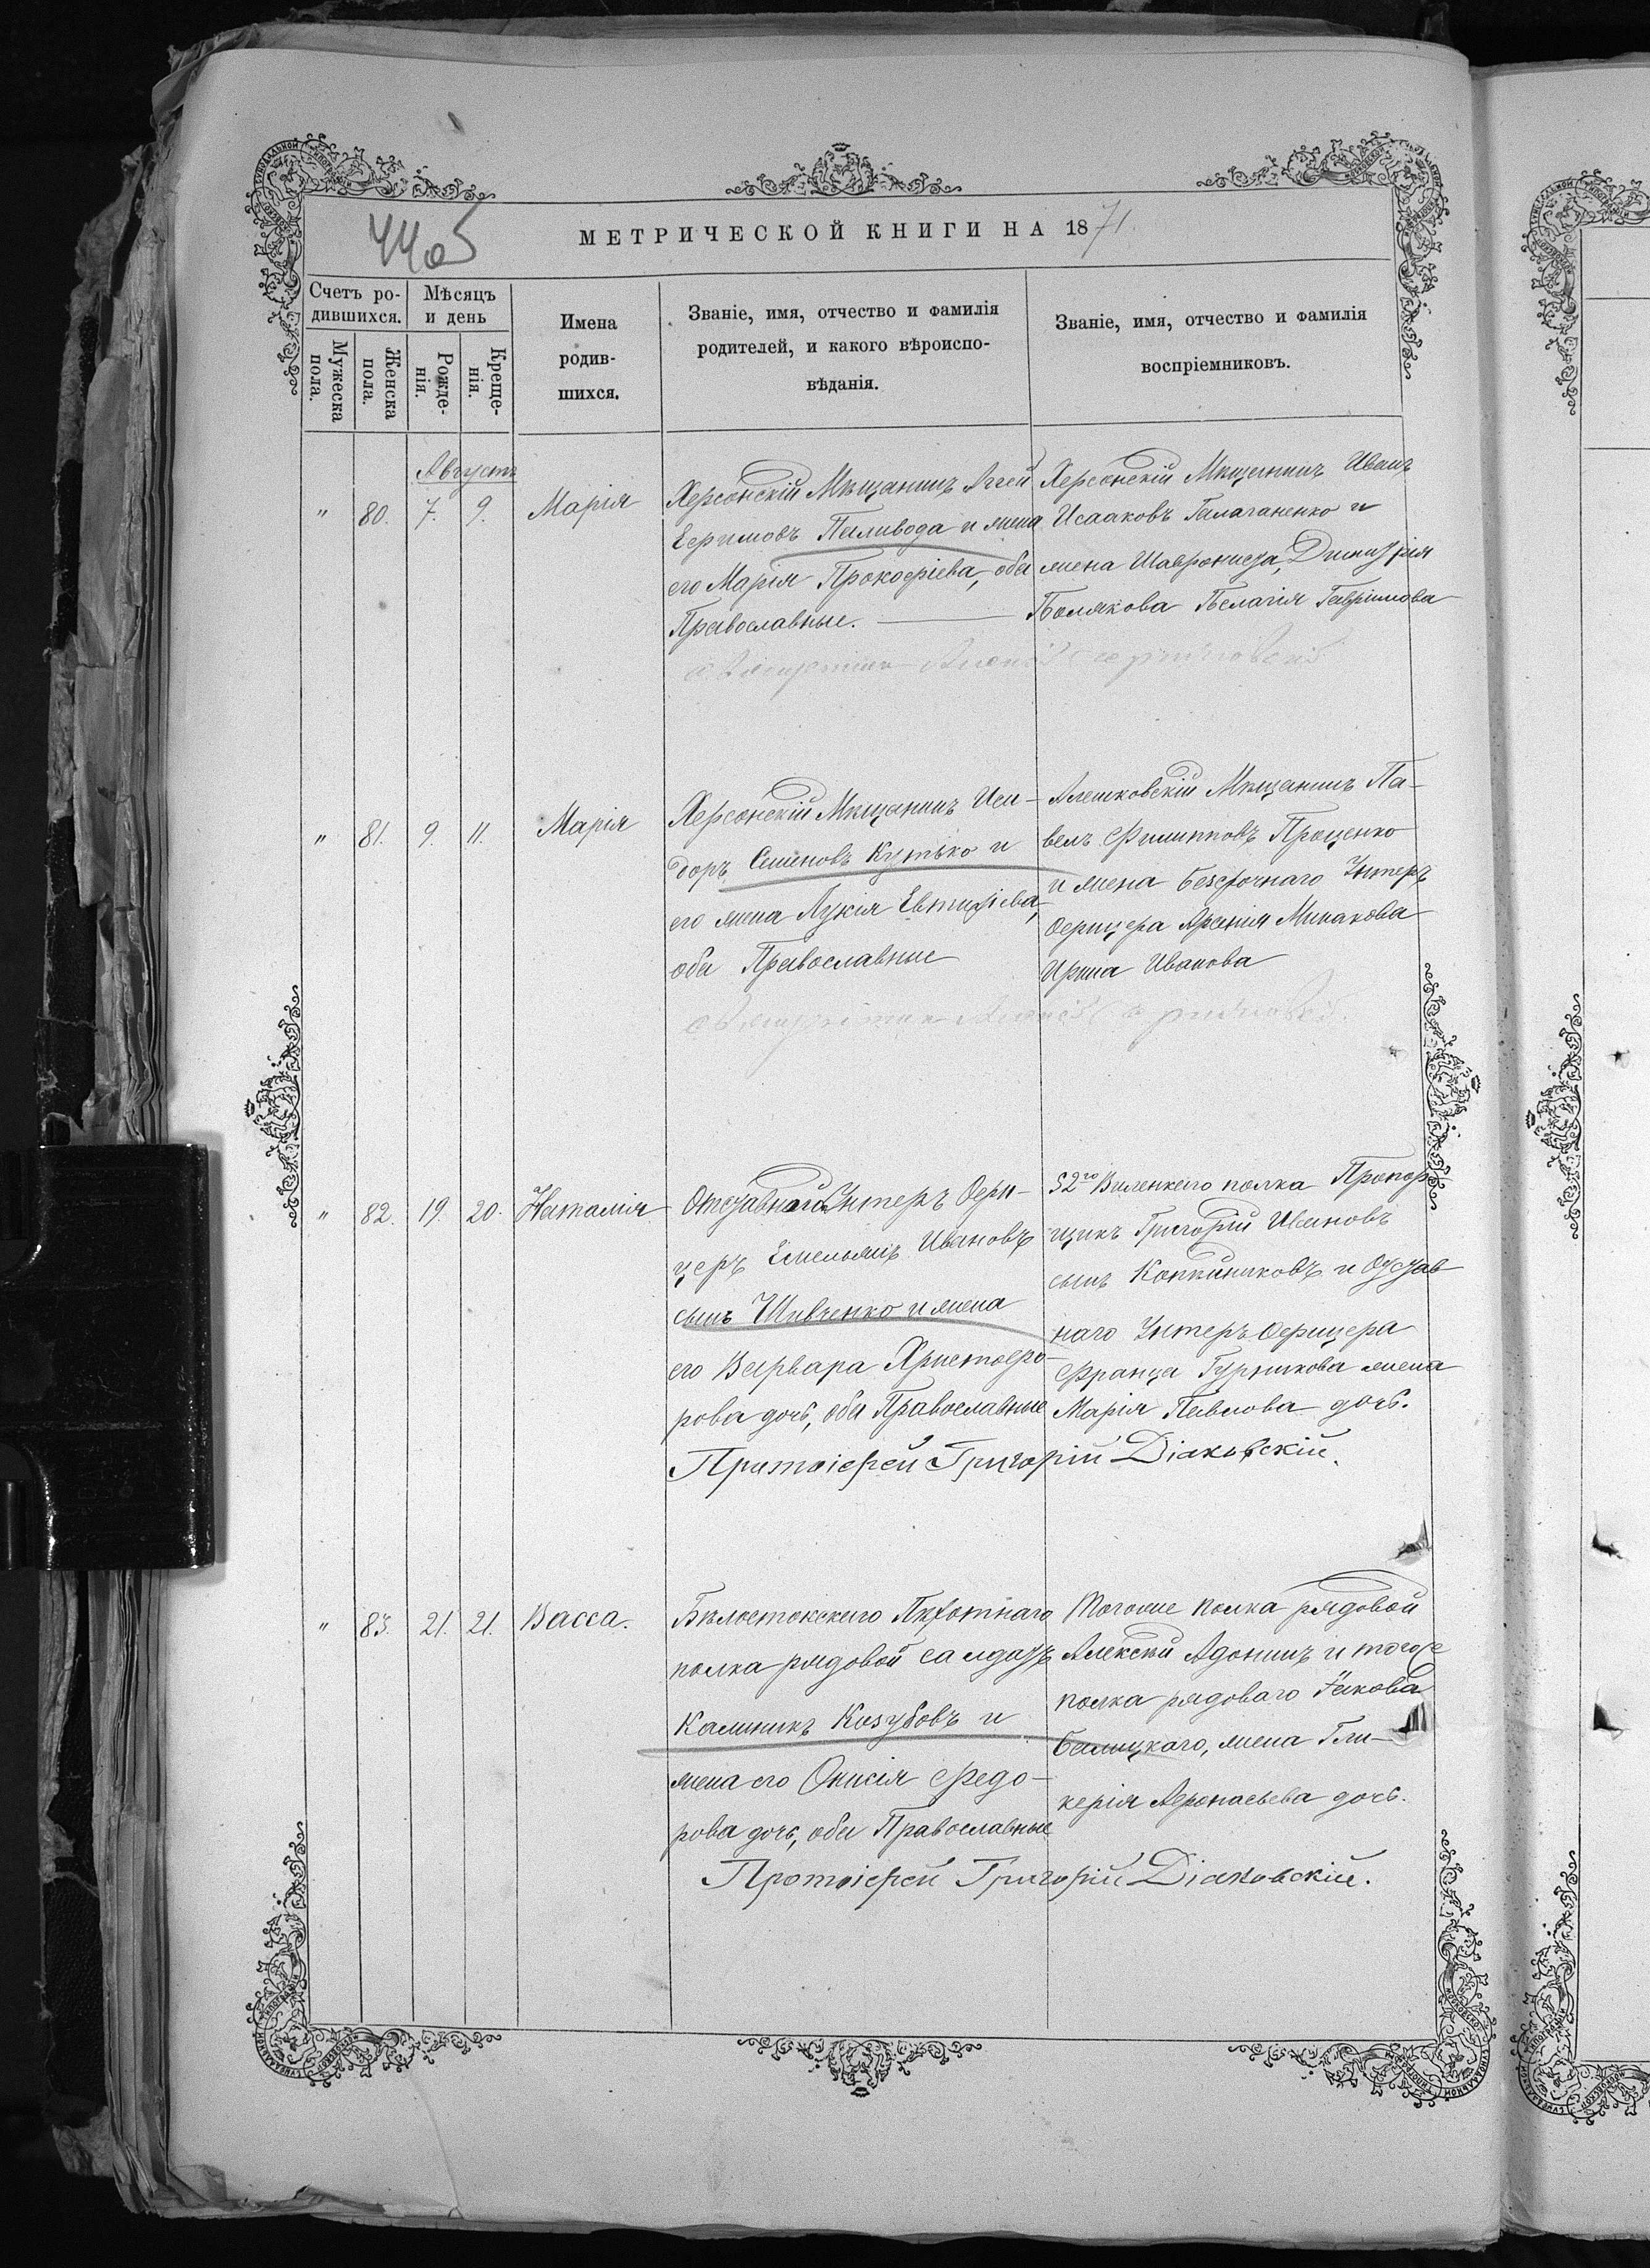 44об
МЕТРИЧЕСКОЙ КНИГИ НА 1871
Счетъ ро-
дившихся.
Мужеска
пола.
Женска
пола.
Мѣсяцъ
и день
Рожде-
нія.
Креще-
нія.
Имена
родив-
шихся.
Званіе, имя, отчество и фамилія
родителей, и какого вѣроиспо-
вѣданія.
Званіе, имя, отчество и фамилія
воспріемниковъ.
Августъ
" 80. 7. 9. Марія
Херсонскій Мѣщанинъ Аггей
Ефимовъ Паливода и жена
его Марія Прокофіева, оба
Православные.
Херсонскій Мѣщанинъ Иванъ
Исааковъ Галаганенко и
жена Димитрія
Полякова Пелагія Гаврилова
" 81. 9. 11. Марія
Херсонскій Мѣщанинъ Иси-
доръ Семеновъ Кутько и
его жена Лукія Евтифіева,
оба Православные
Алешковскій Мѣщанинъ Па-
велъ Филипповъ Проценко
и жена безсрочнаго Унтеръ
Офицера Арсенія Минакова
Ирина Иванова
" 82. 19. 20. Наталія
Отставной Унтеръ Офи-
церъ Емельянъ Ивановъ
сынъ Шевченко и жена
его Варвара Христофо-
рова дочь, оба Православные
52го Виленскаго полка Прапор
щикъ Григорій Ивановъ
сынъ и Отстав
наго Унтеръ Офицера
Франца жена
Марія Павлова дочь.
Протоіерей Григорій Діаковскій.
" 83. 21. 21. Васса.
Бѣлостокскаго Пѣхотнаго
полка рядовой салдатъ
Калиникъ Козубовъ и
жена его Онисія Федо-
рова дочь, оба Православные
Тогоже полка рядовой
Алексѣй Адонинъ и тогоже
полка рядоваго Іакова
Белицкаго, жена Гли-
керія Афонасьева дочь.
Протоіерей Григорій Діаковскій.